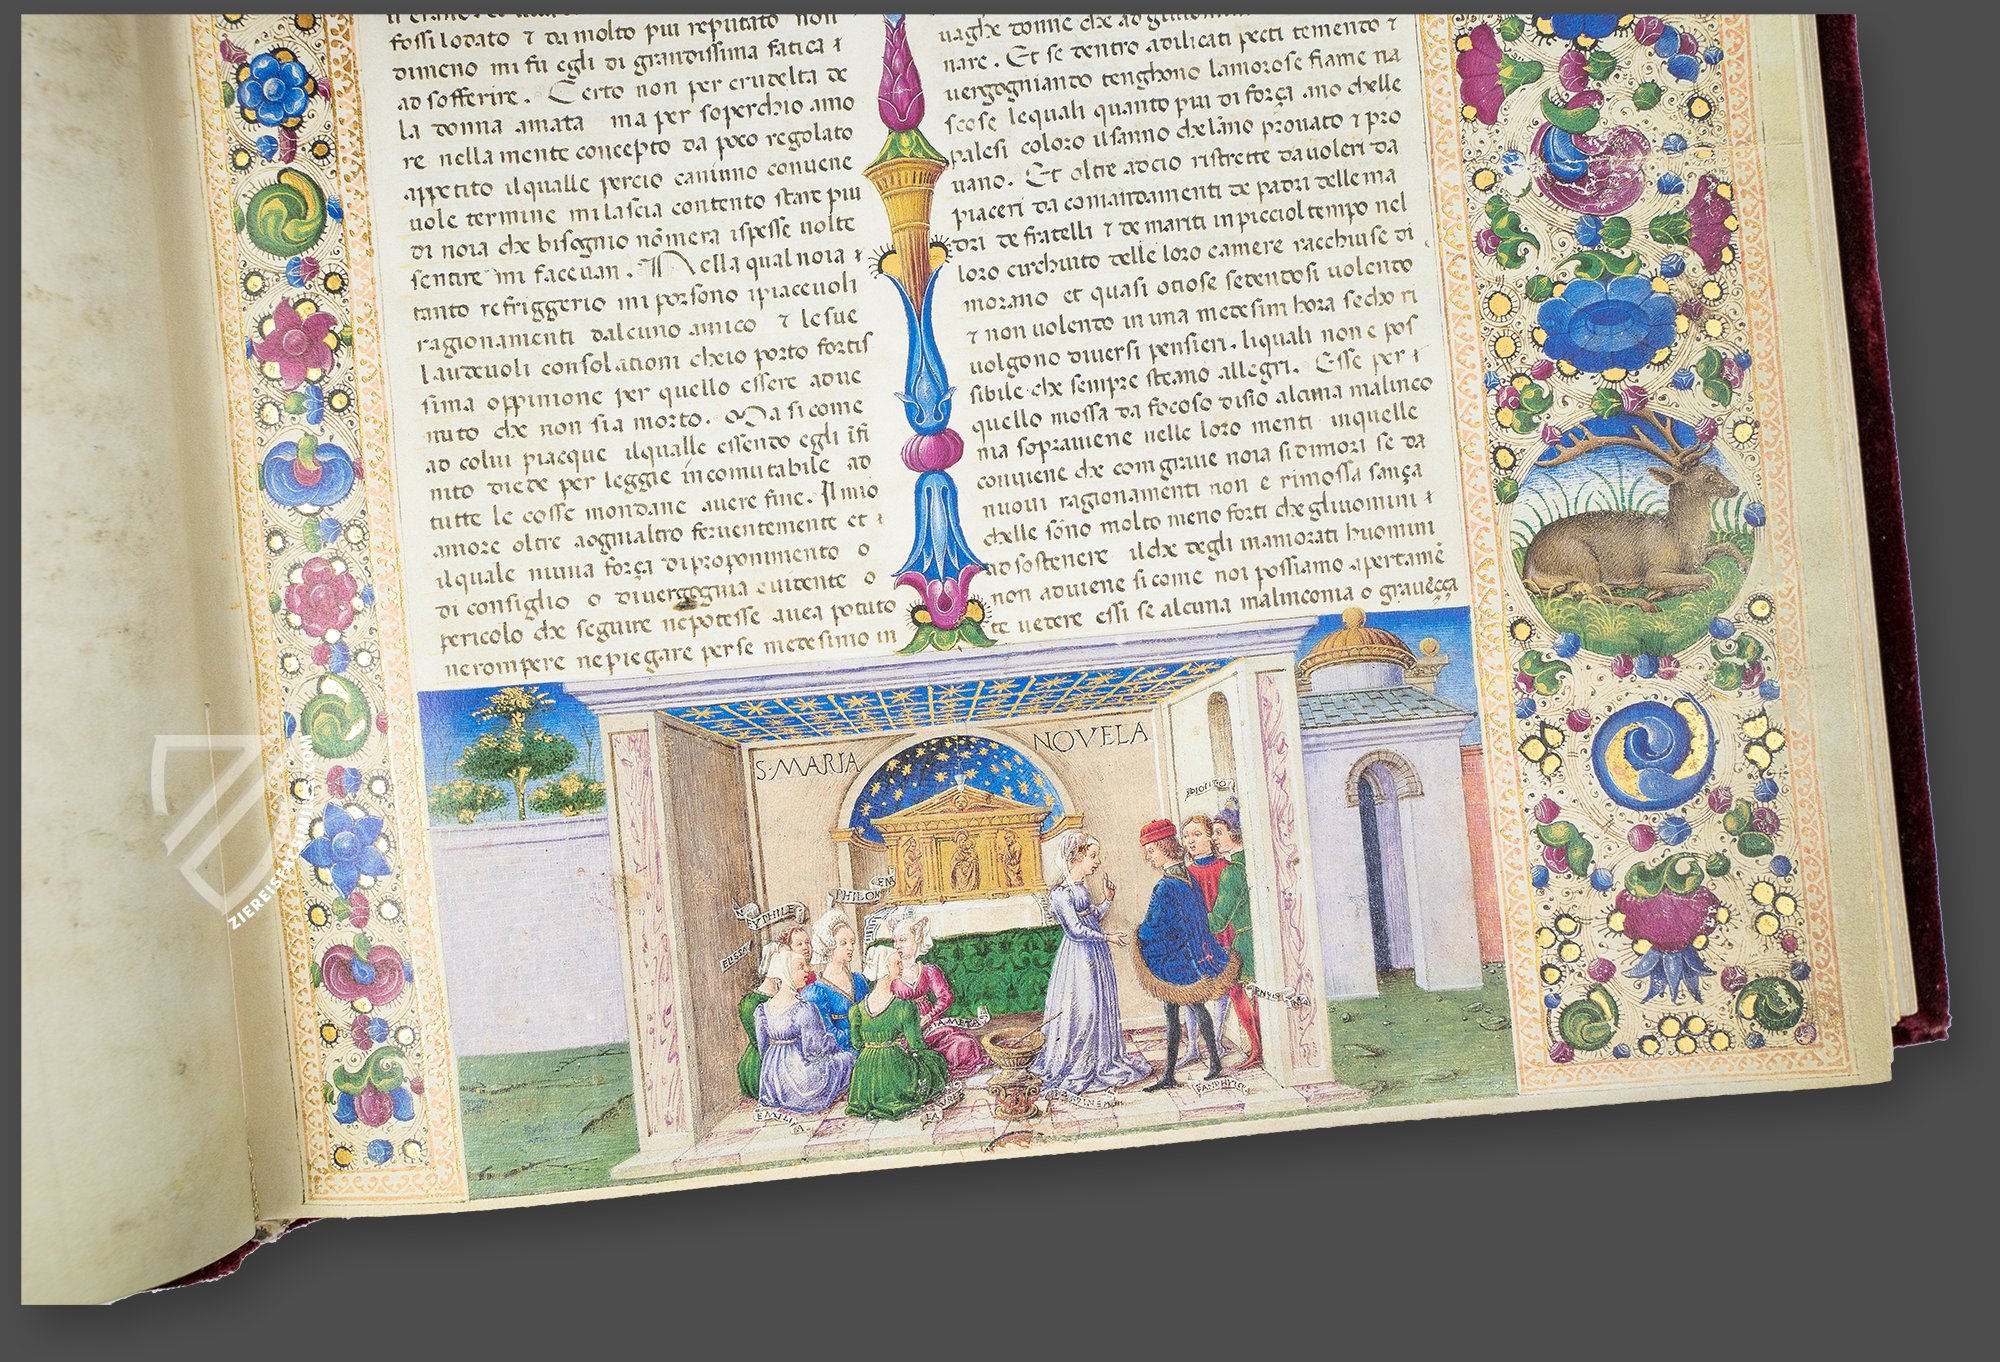 fossi lodato ⁊ da molto piu reputato non
dimeno mi fu egli di grandissima fatica ⁊
ad sofferire. Certo non per crudelta de
la donna amata ma per soperchio amo
re nella mente concepto da poco regolato
appetito il qualle percio caninno convene
uole termine mi lascia contento stare piu
di noia che bisogno nōmera ispesse uolte
sentire mi faceuan. Nella qual noia ⁊
tanto refriggerio mi porsono ipiaceuoli
ragionamenti dalcuno amico ⁊ le sue
laudeuoli consolationi cheio porto fortis
sima oppinione per quello essere adue
nuto che non sia morto. Ma si come
ad colui piacque il qualle essendo egli īfi
nito diede per leggie incomutabile ad
tutte le cosse mondane auere fine. Il mio
amore oltre adgnialtro feruentemente et ⁊
il quale niuna força di proponimento o
di consiglio o di uergognia euidente o
pericolo che seguire ne potesse auea potuto
ne rompere ne piegare per se medesimo in
uaghe donne che ad gliuomini
nare. Et se dentro adilicati pecti temento ⁊
uergogniando tenghono lamorose fiame na
scose lequali quanto piu di força ano chelle
palesi coloro il sanno che lāno prouato ⁊ pro
uano. Et oltre adcio ristrette da uoleri da
piaceri da comandamenti de padri delle ma
dri de fratelli ⁊ de mariti in picciol tempo nel
loro circhuito delle loro camere racchiuse di
morano et quasi otiose sedendosi uolendo
⁊ non uolendo in una medesim hora secho ri
uolgono diuersi pensieri. li quali non e pos
sibile che sempre steano allegri. Esse per ⁊
quello mossa da focoso disio alcuna malinco
nia soprauiene nelle loro menti inquelle
conuiene che con graue noia si dimori se da
nuoui ragionamenti non e rimossa sança
chelle sōno molto meno forti che gliuomini ⁊
ad sostenere il che degli inamorati huomini
non aduiene si come noi possiamo apertamē
te uedere essi se alcuna malinconia o graueçça
S·MARIA NOVELA
PHILO
EMILIA
ZIEREIS